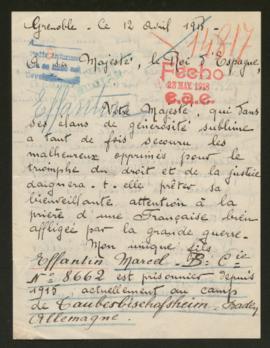 Grenoble - Ce 12 Avril 191
14817
A Sa Majesté, le Roi d'Espagne,
Fecho
23 MAY. 1918
e.a.e.
Effantin
Votre Majesté, qui dans
ses élans de générosité sublime
a tant de fois secouru les
malheureux opprimés pour le
triomphe du droit et de la justice
daignera-t-elle prêter sa
bienveillante attention à la
prière d'une Française bien
affligée par la grande guerre.
Mon unique fils
Effantin Marcel Cie
No 8662 est prisonnier depuis
1915, actuellement au camp
de Tauberbischofsheim - Baden
Allemagne.